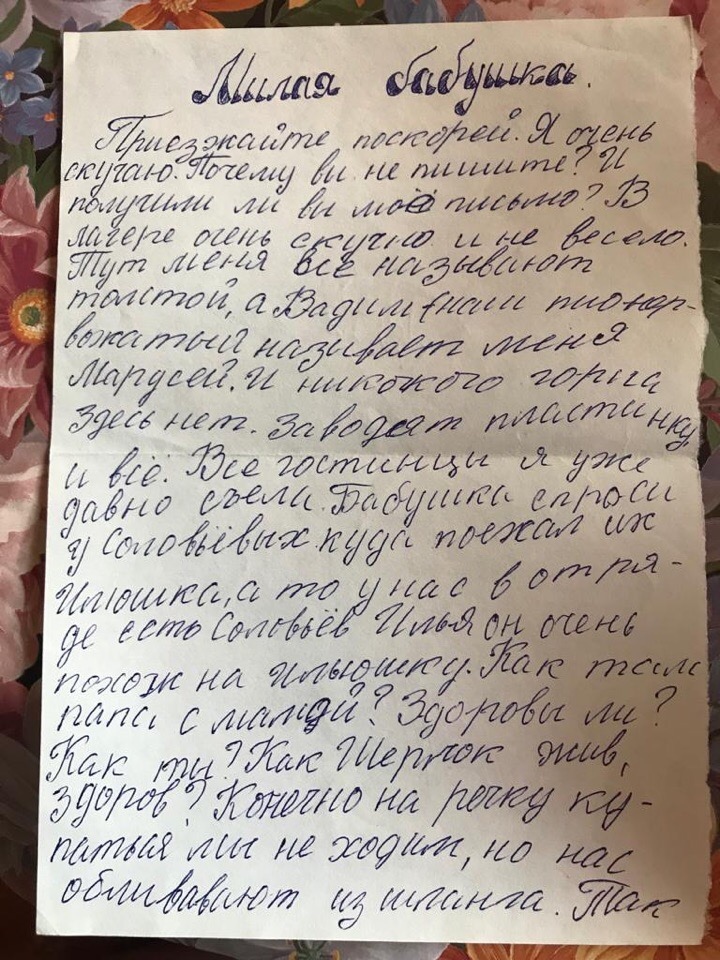 Милая бабушка.
Приезжайте поскорей. Я очень
скучаю. Почему ви не пишите? И
получили ли ви моё письмо? В
лагере очень скучно и не весело.
Тут меня всё називают
толстой, а Вадим (наш пионер-
вожатый називает меня
Марусей. И никокого горна
здесь нет. Заводят пластинку
и всё. Все гостинцы я уже
давно съела. Бабушка спроси
у Соловьёвых куда поехал их
Илюшка, а то у нас в отря-
де есть Соловьёв Илья он очень
похож на Илюшку. Как там
папа с мамой? Здоровы ли?
Как ты? Как Шерлок жив,
здоров? Конечно на речку ку-
паться мы не ходим, но нас
обливавают из шланга. Так